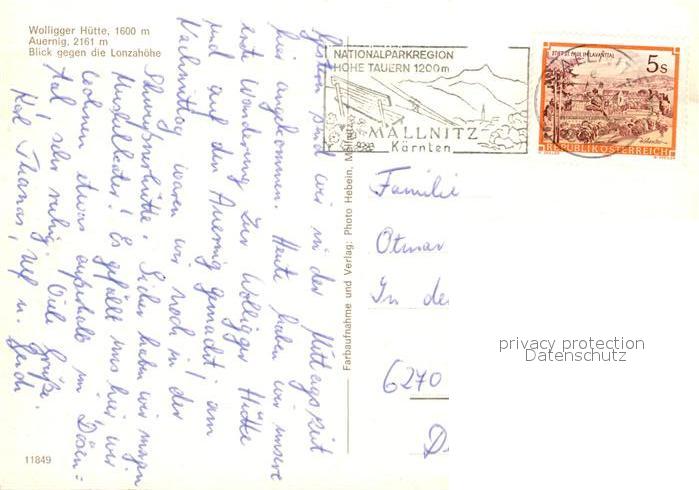 Wolligger Hütte, 1600 m
Auernig, 2161 m
Blick gegen die Lonzahöhe
Gestern sind wir in der Mittagszeit
hier angekommen. Heute haben wir unsere
erste Wanderung zur Wolligger Hütte
und auf den Auernig gemacht! am
Nachmittag waren wir noch in der
Sicher haben wir morgen
Muskelkater! Es gefällt uns hier, wir
wohnen etwas außerhalb im Dösen-
tal, sehr ruhig. Viele Grüße.
Thomas, u.
11849
Farbaufnahme und Verlag: Photo Hebein, Mallnitz
NATIONALPARKREGION
HOHE TAUERN 1200m
MALLNITZ
Kärnten
MALLNITZ
STIFT ST. PAUL IM LAVANTTAL
5s
REPUBLIK ÖSTERREICH
Familie
Otmar
In de
6270
privacy protection
Datenschutz